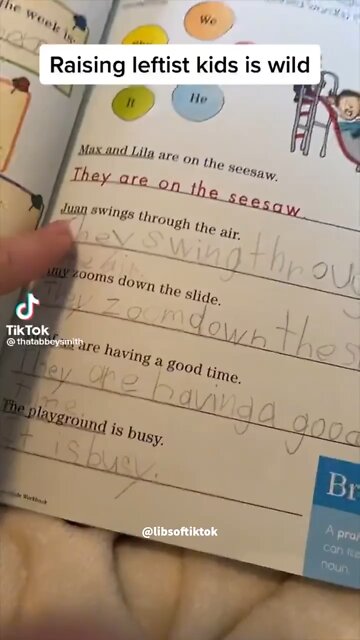 Raising leftist kids is wild
the week is
We
It
He
Max and Lila are on the seesaw.
They are on the seesaw
Juan swings through the air.
They swing throu
the air.
zooms down the slide.
They zoom down the s
are having a good time.
They are having a good
time.
The playground is busy.
It is busy.
Workbook
Br
A pro
can
noun.
TikTok
@thatabbeysmith
@libsoftiktok